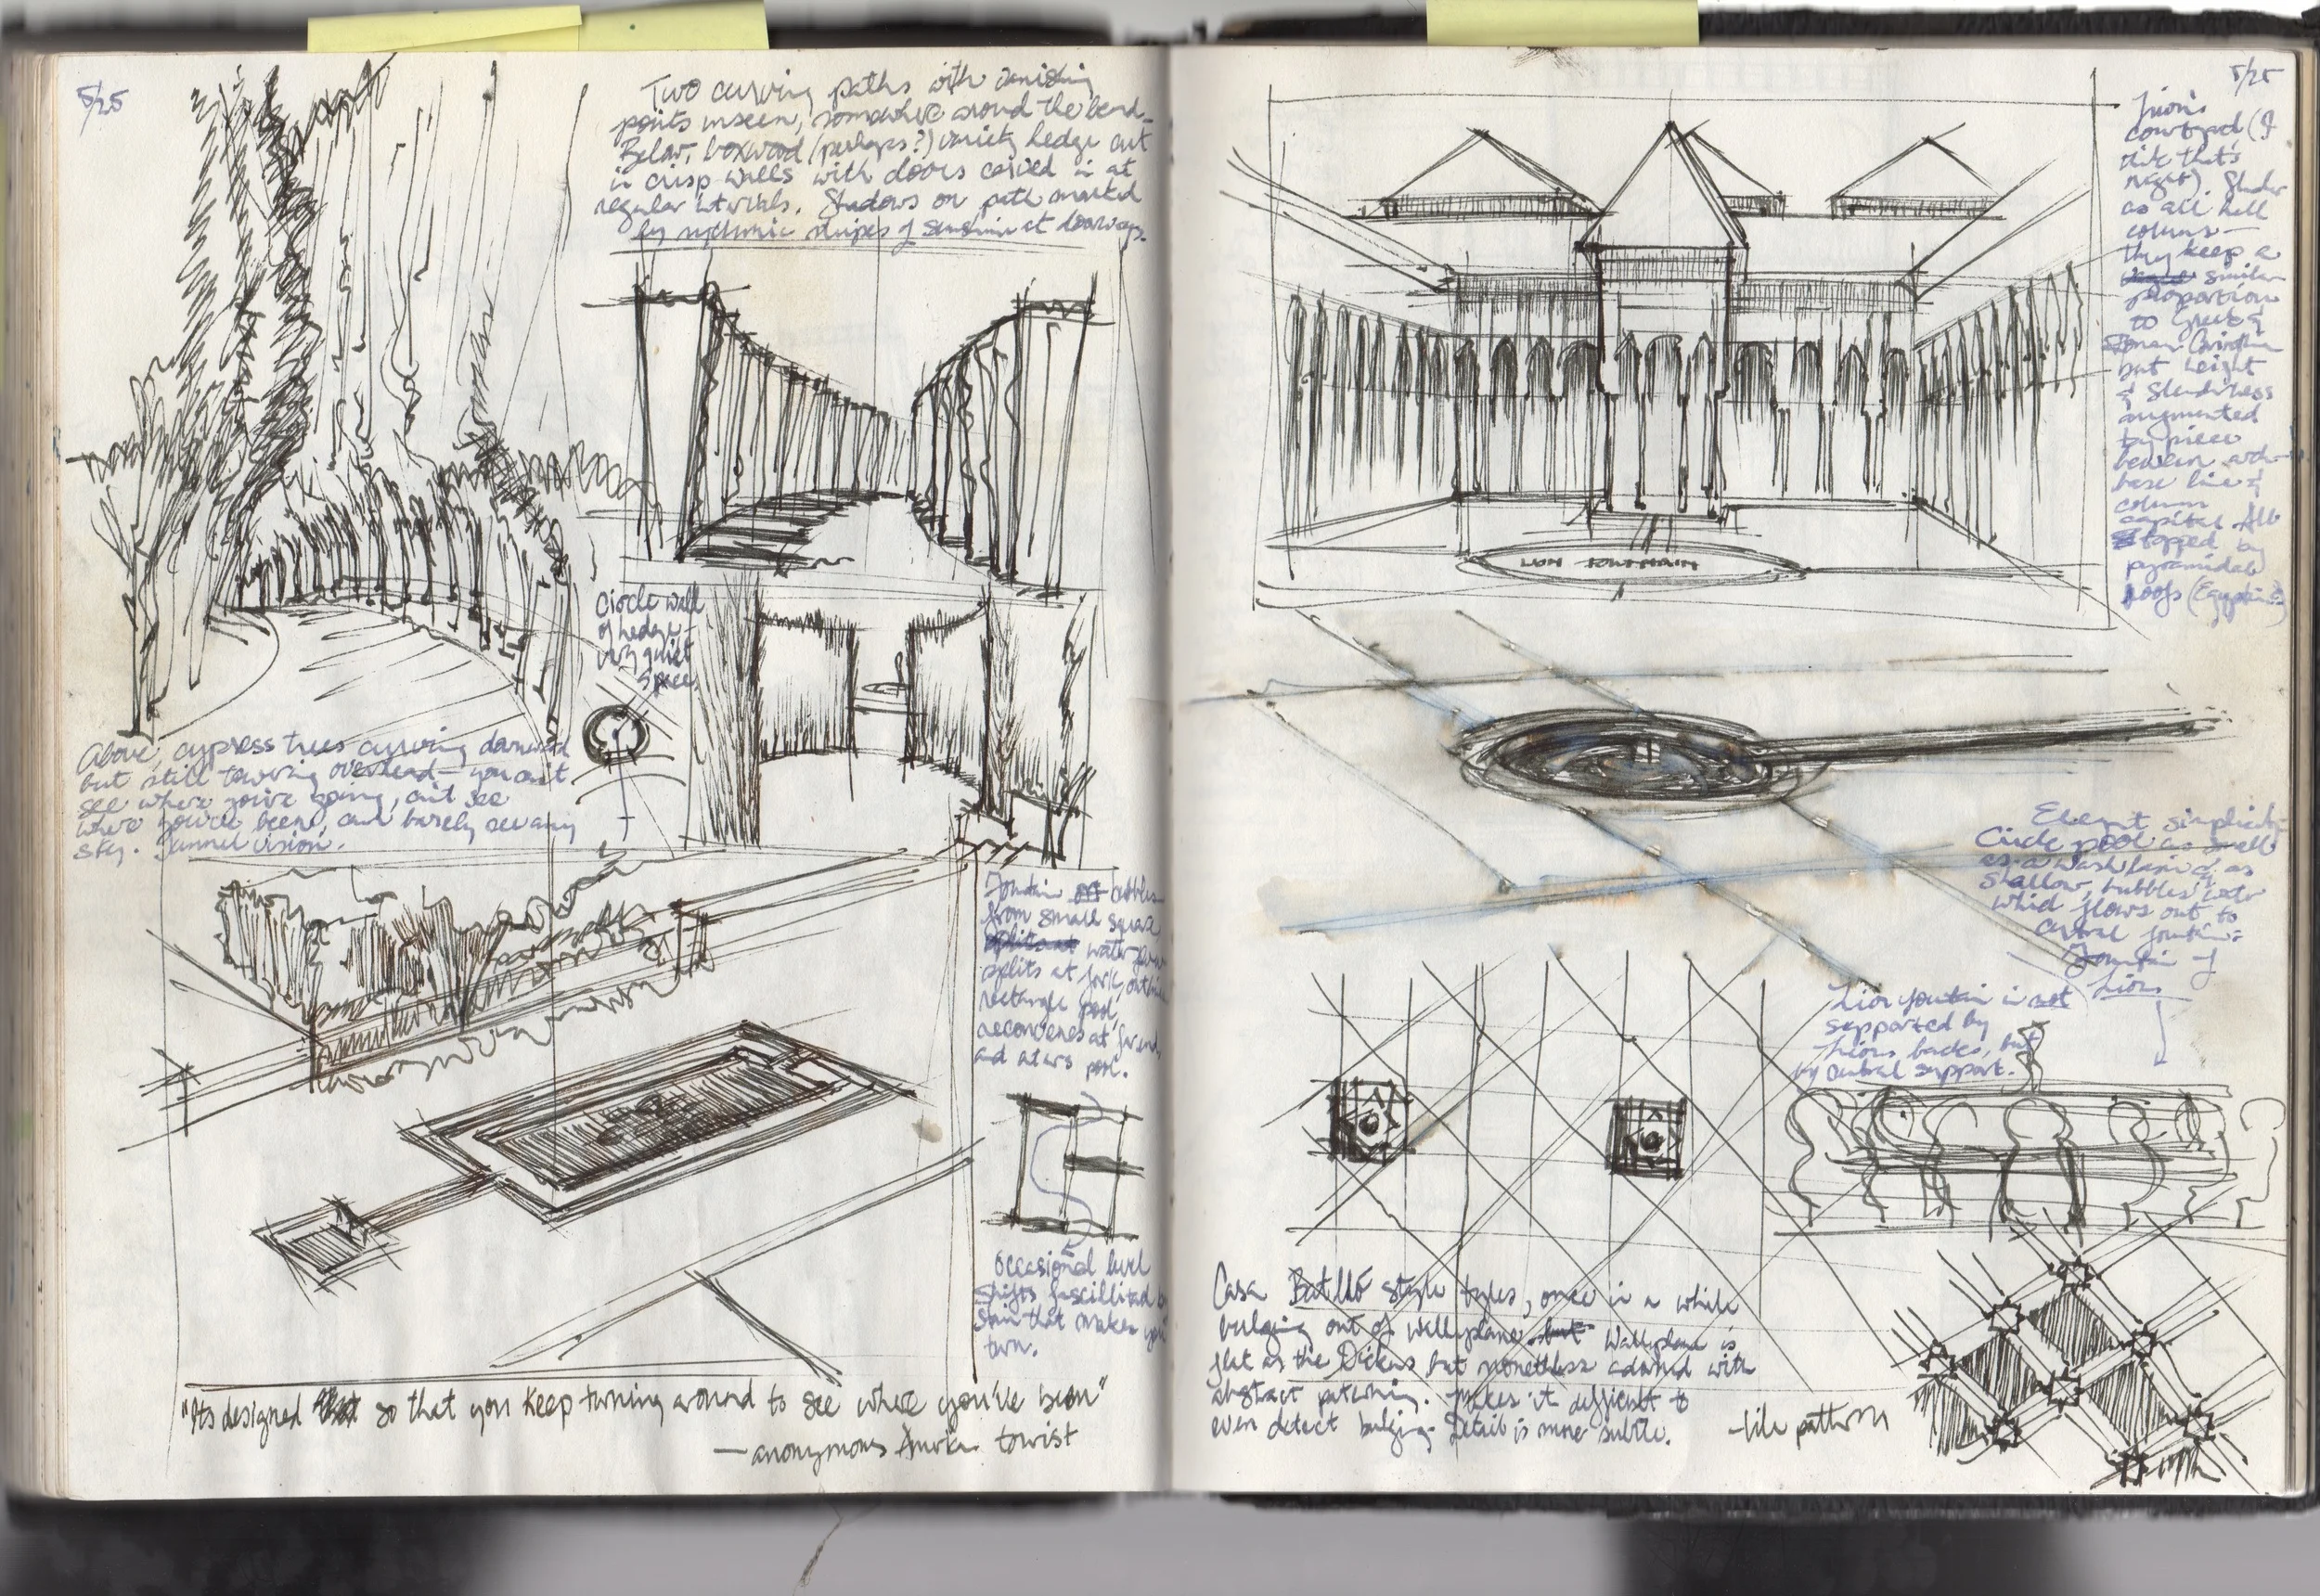 5/25
Two curving paths with vanishing
points unseen, somewhere around the bend.
Below, boxwood (perhaps?) variety hedge cut
in crisp walls with doors carved in at
regular intervals. Shadows on path marked
by rythmic stripes of sunshine at doorways.
Circle wall
of hedge -
very quiet
space
Above, cypress trees curving downward
but still towering overhead - you can't
see where you're going, can't see
where you've been, can barely see any
sky. Tunnel vision.
Fountain bubbles
from small square
water
splits at fork, outlines
rectangle pool,
reconvenes at far end,
and enters pool.
Occasional level
shifts fascillitated by
stair that makes you
turn.
"Its designed so that you keep turning around to see where you've been"
— anonymous tourist
5/25
Lion's
courtyard (I
think that's
right). Slender
as all hell
columns —
they keep a
similar
proportion
to Greek &
Roman Corinthian
but height
& slenderness
augmented
by piece
between arch
base line &
column
capital. All
topped by
pyramidal
roofs (Egyptian?)
LION FOUNTAIN
Elegant simplicity:
Circle pool as small
as a wash basin & as
shallow, bubbles water
which flows out to
central fountain:
Fountain of
Lions
Lion fountain is not
supported by
lions backs, but
by central support.
Casa Batlló style tyles, once in a while
bulging out of wall plane but wall plane is
flat as the Dickens but nonetheless adorned with
abstract patterning. Makes it difficult to
even detect bulging. Detail is more subtle.
- tile pattern